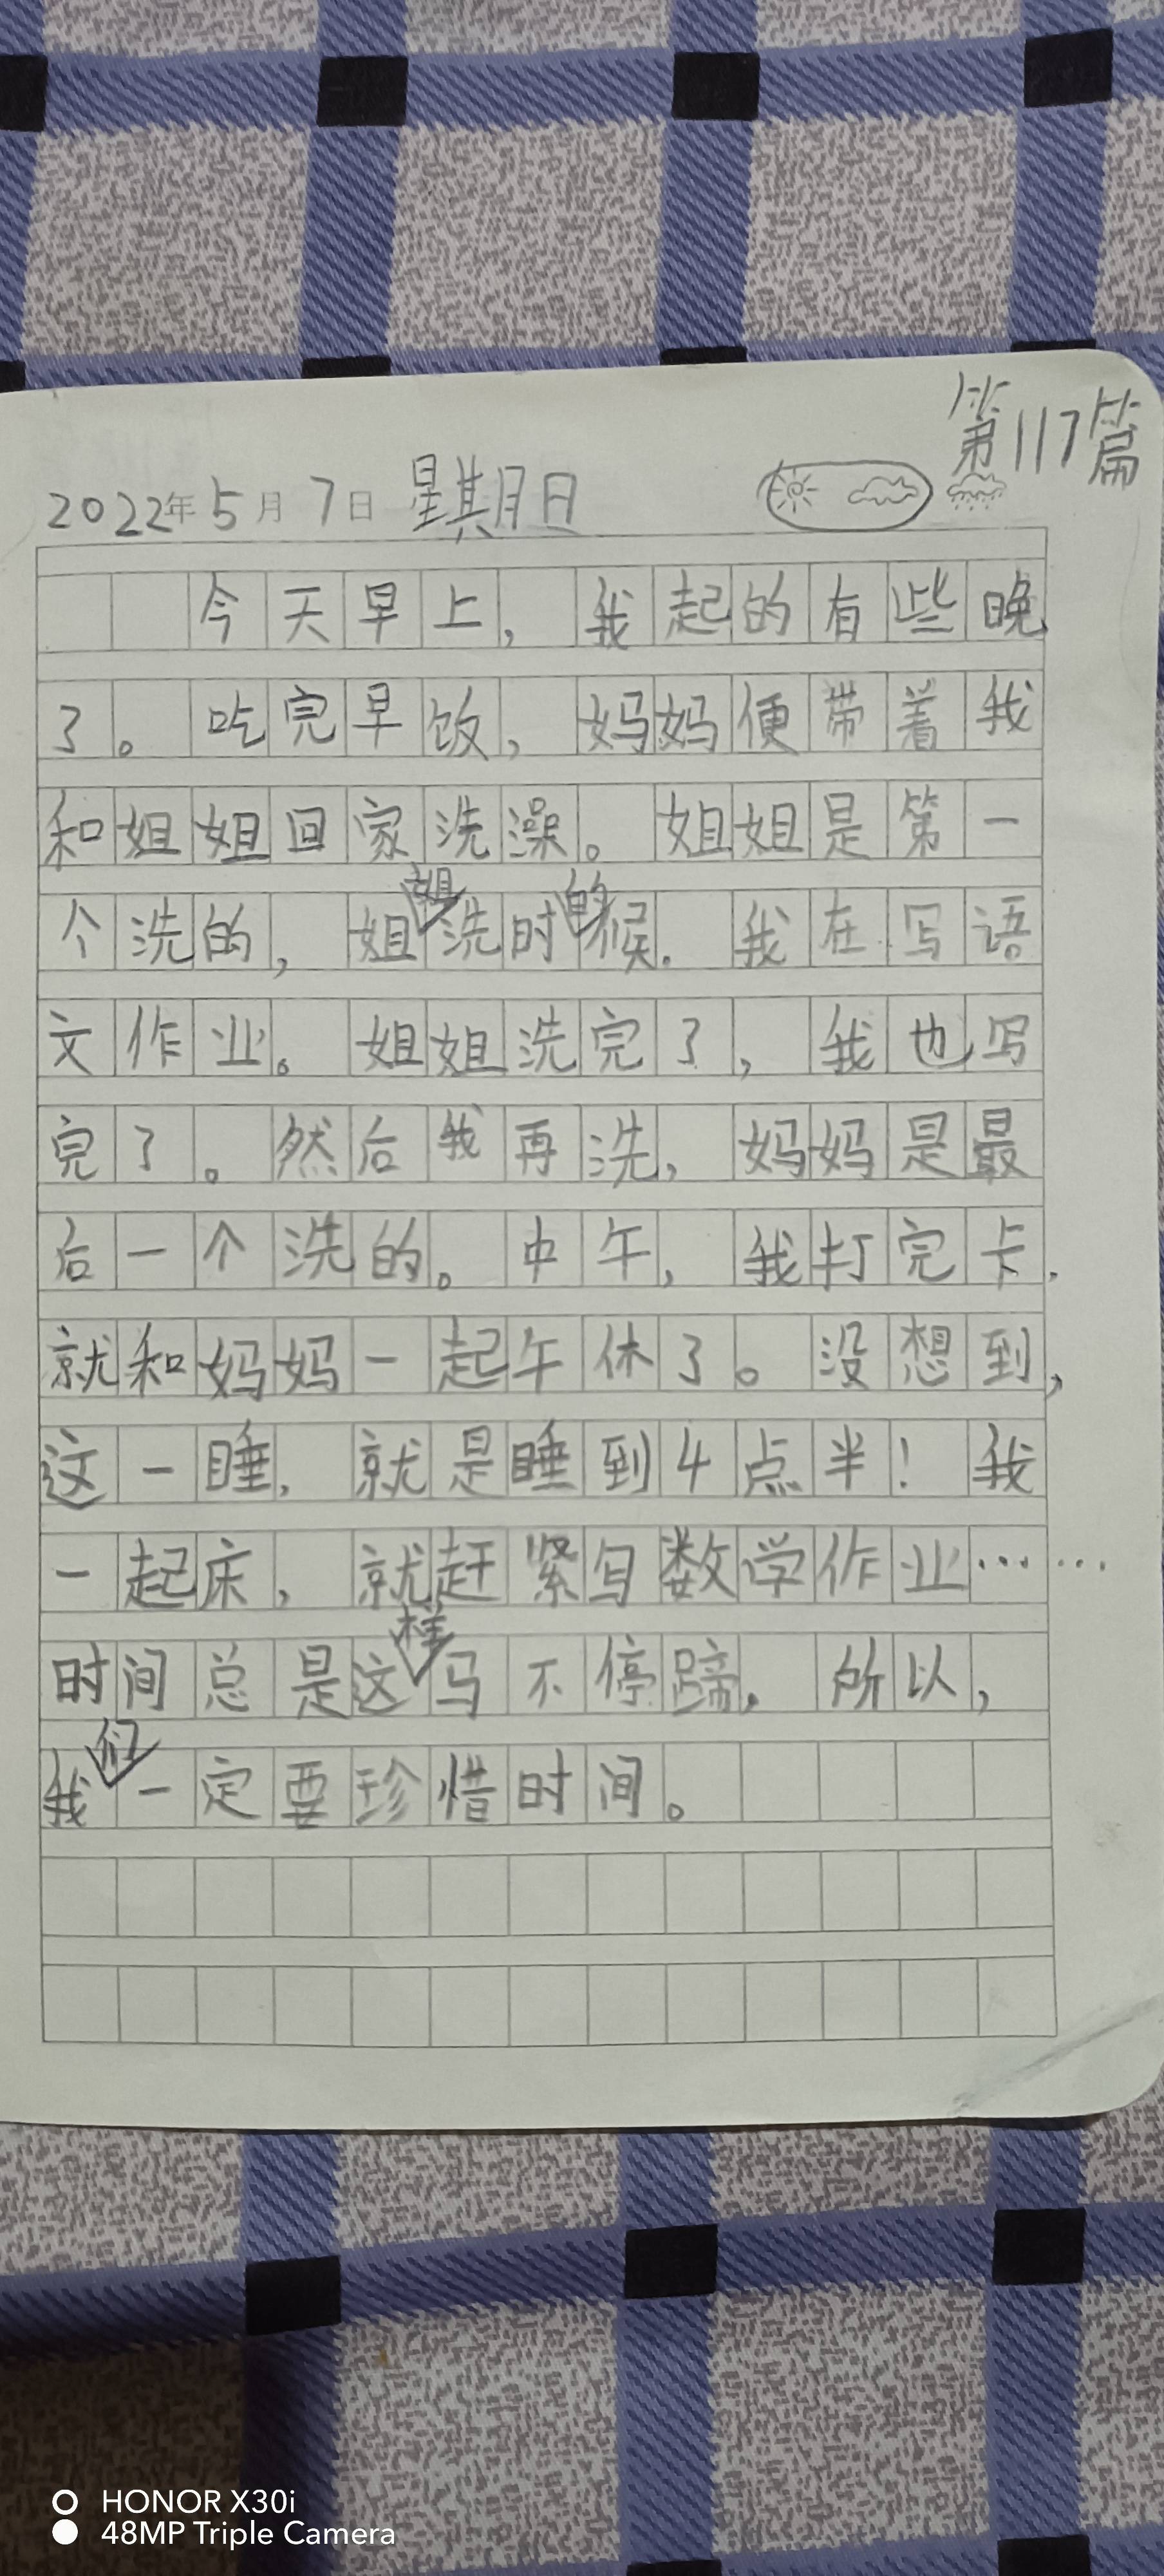 第117篇
2022年5月7日 星期日
今天早上，我起的有些晚
了。吃完早饭，妈妈便带着我
和姐姐回家洗澡。姐姐是第一
个洗的，姐姐洗时的候，我在写语
文作业。姐姐洗完了，我也写
完了。然后我再洗，妈妈是最
后一个洗的。中午，我打完卡，
就和妈妈一起午休了。没想到，
这一睡，就是睡到4点半！我
一起床，就赶紧写数学作业……
时间总是这样马不停蹄，所以，
我们一定要珍惜时间。
HONOR X30i
48MP Triple Camera